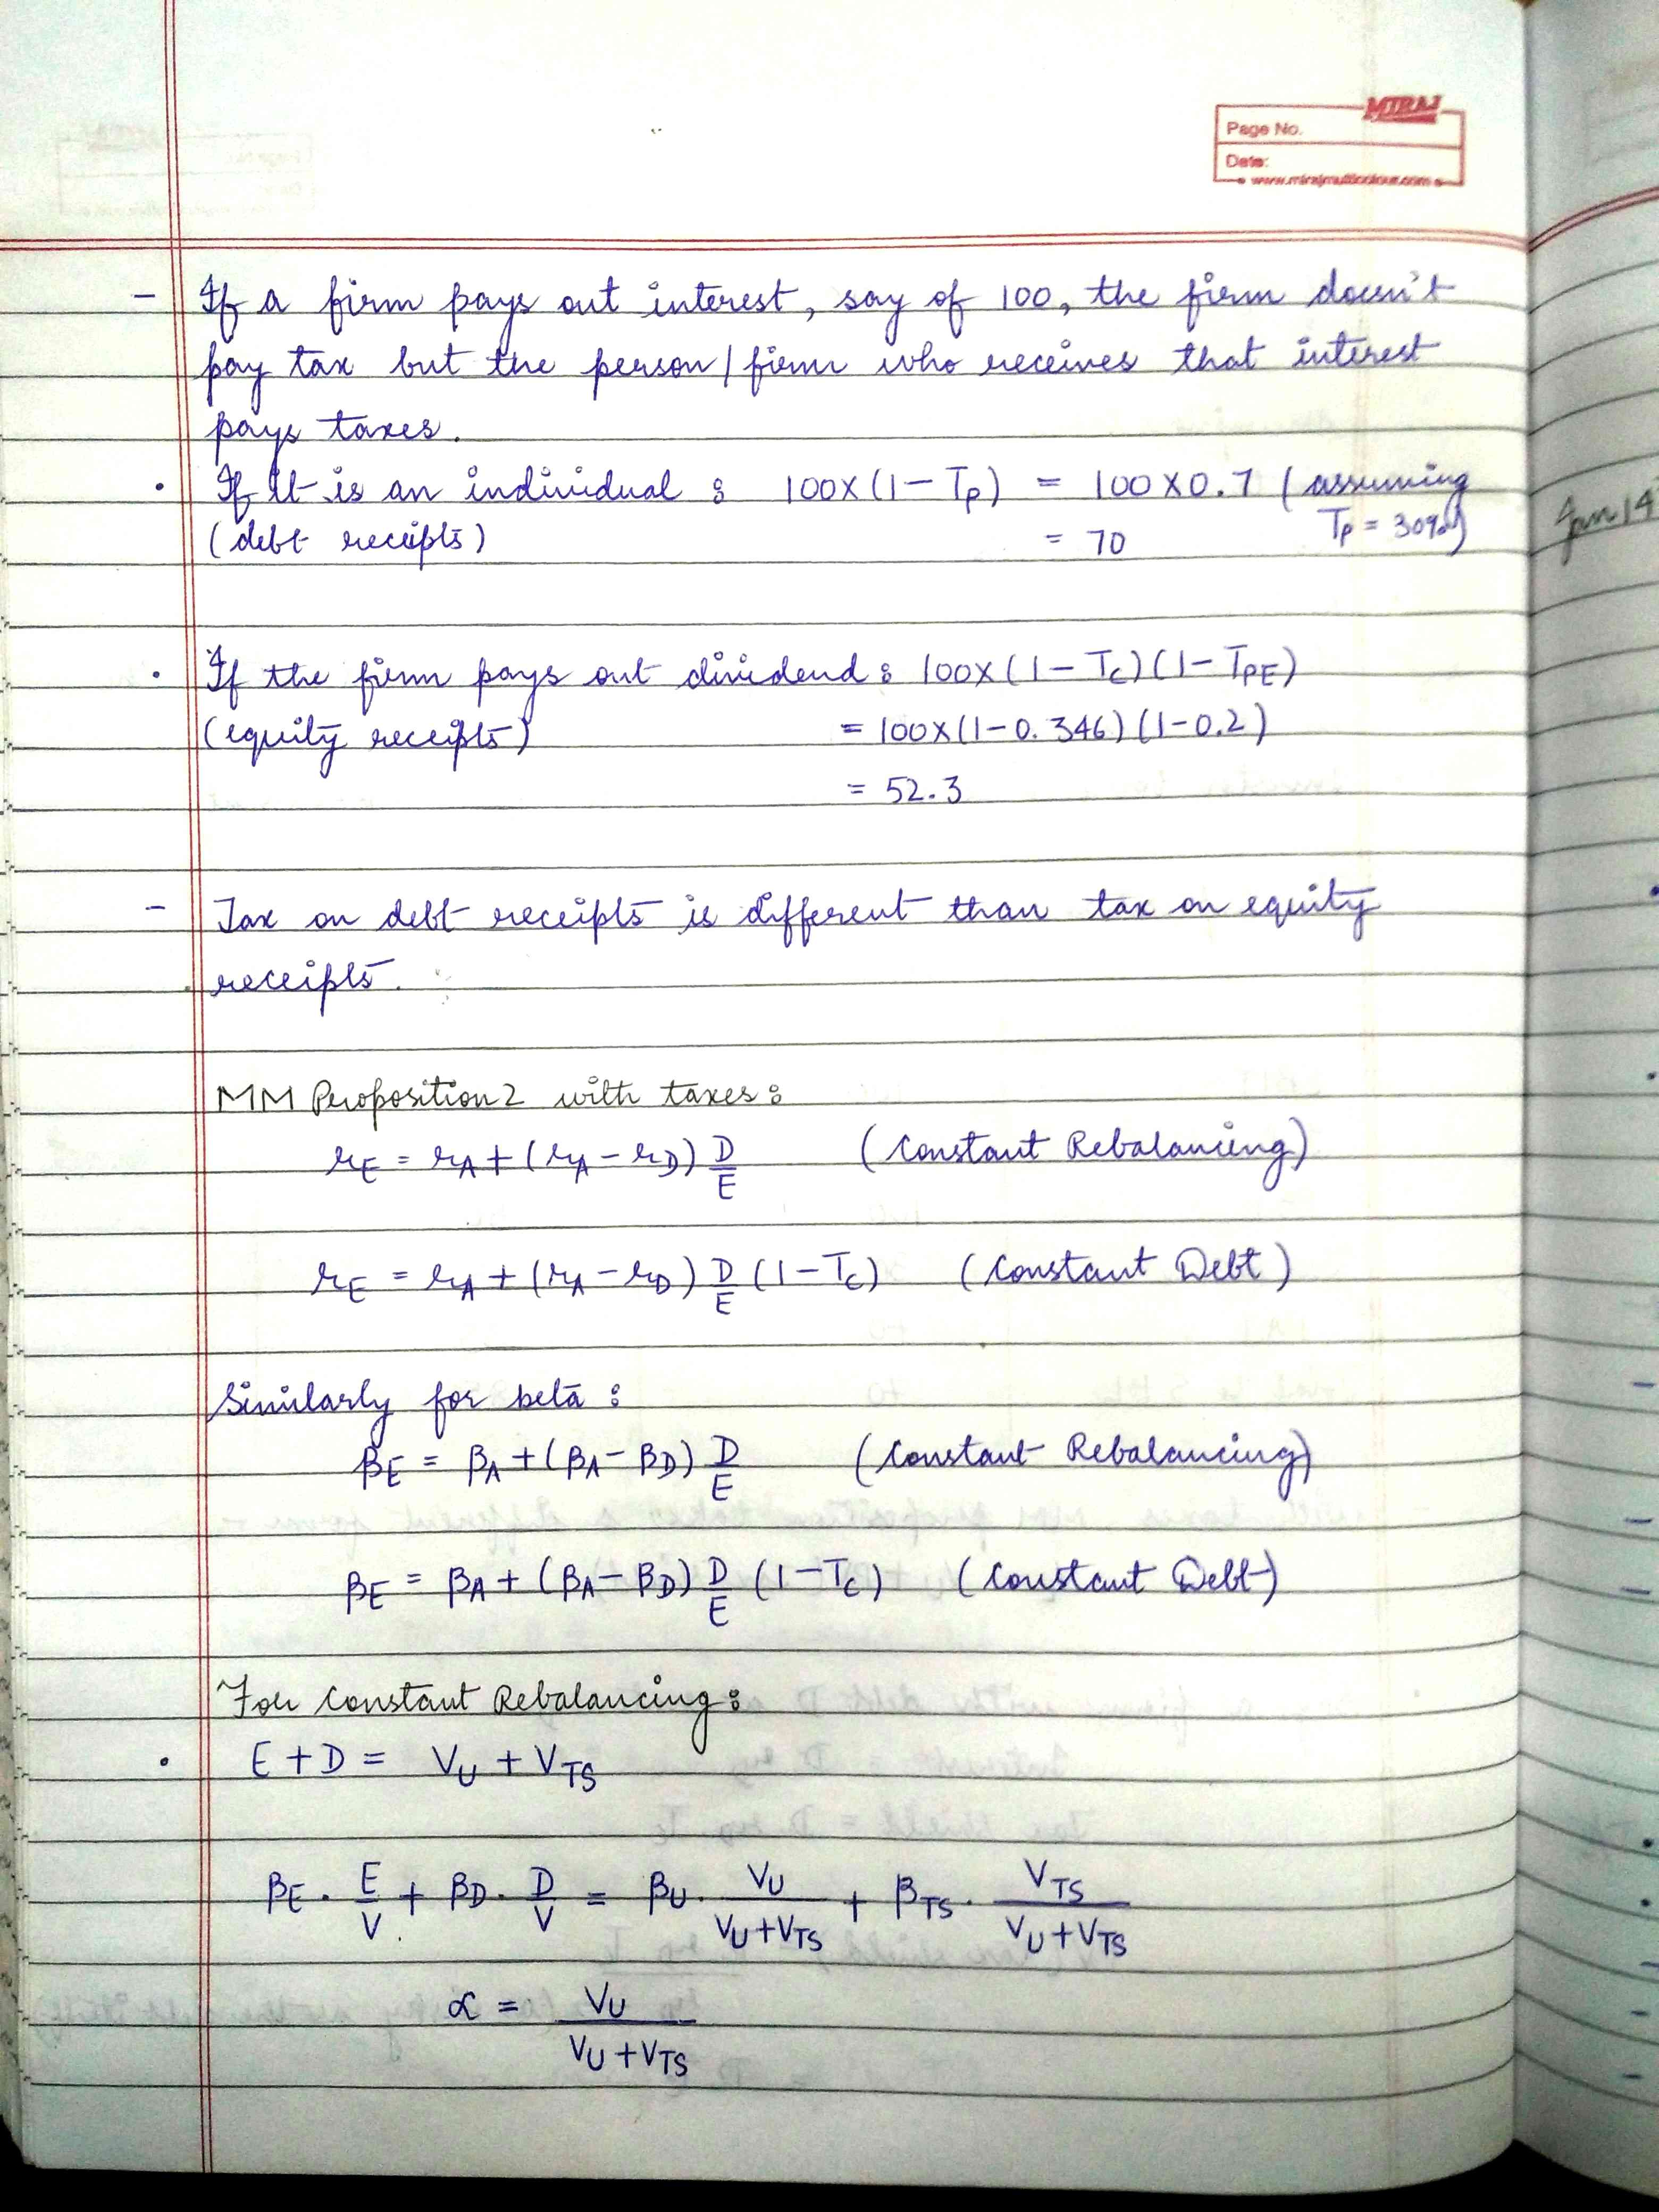 MIRAJ
Page No.
Date:
www.mirajmulticolour.com
- If a firm pays out interest, say of 100, the firm doesn't
pay tax but the person/firm who receives that interest
pays taxes.
• If it is an individual : 100×(1-Tp) = 100×0.7 (assuming
(debt receipts) = 70 Tp = 30%)
Jan 14
• If the firm pays out dividend : 100×(1-Tc)(1-TPE)
(equity receipts) = 100×(1-0.346)(1-0.2)
= 52.3
- Tax on debt receipts is different than tax on equity
receipts.
MM Proposition 2 with taxes :
rE = rA + (rA - rD) D/E (Constant Rebalancing)
rE = rA + (rA - rD) D/E (1-Tc) (Constant Debt)
Similarly for beta :
βE = βA + (βA - βD) D/E (Constant Rebalancing)
βE = βA + (βA - βD) D/E (1-Tc) (Constant Debt)
For Constant Rebalancing :
• E + D = VU + VTS
βE . E/V + βD . D/V = βU . VU/(VU+VTS) + βTS . VTS/(VU+VTS)
α = VU/(VU+VTS)